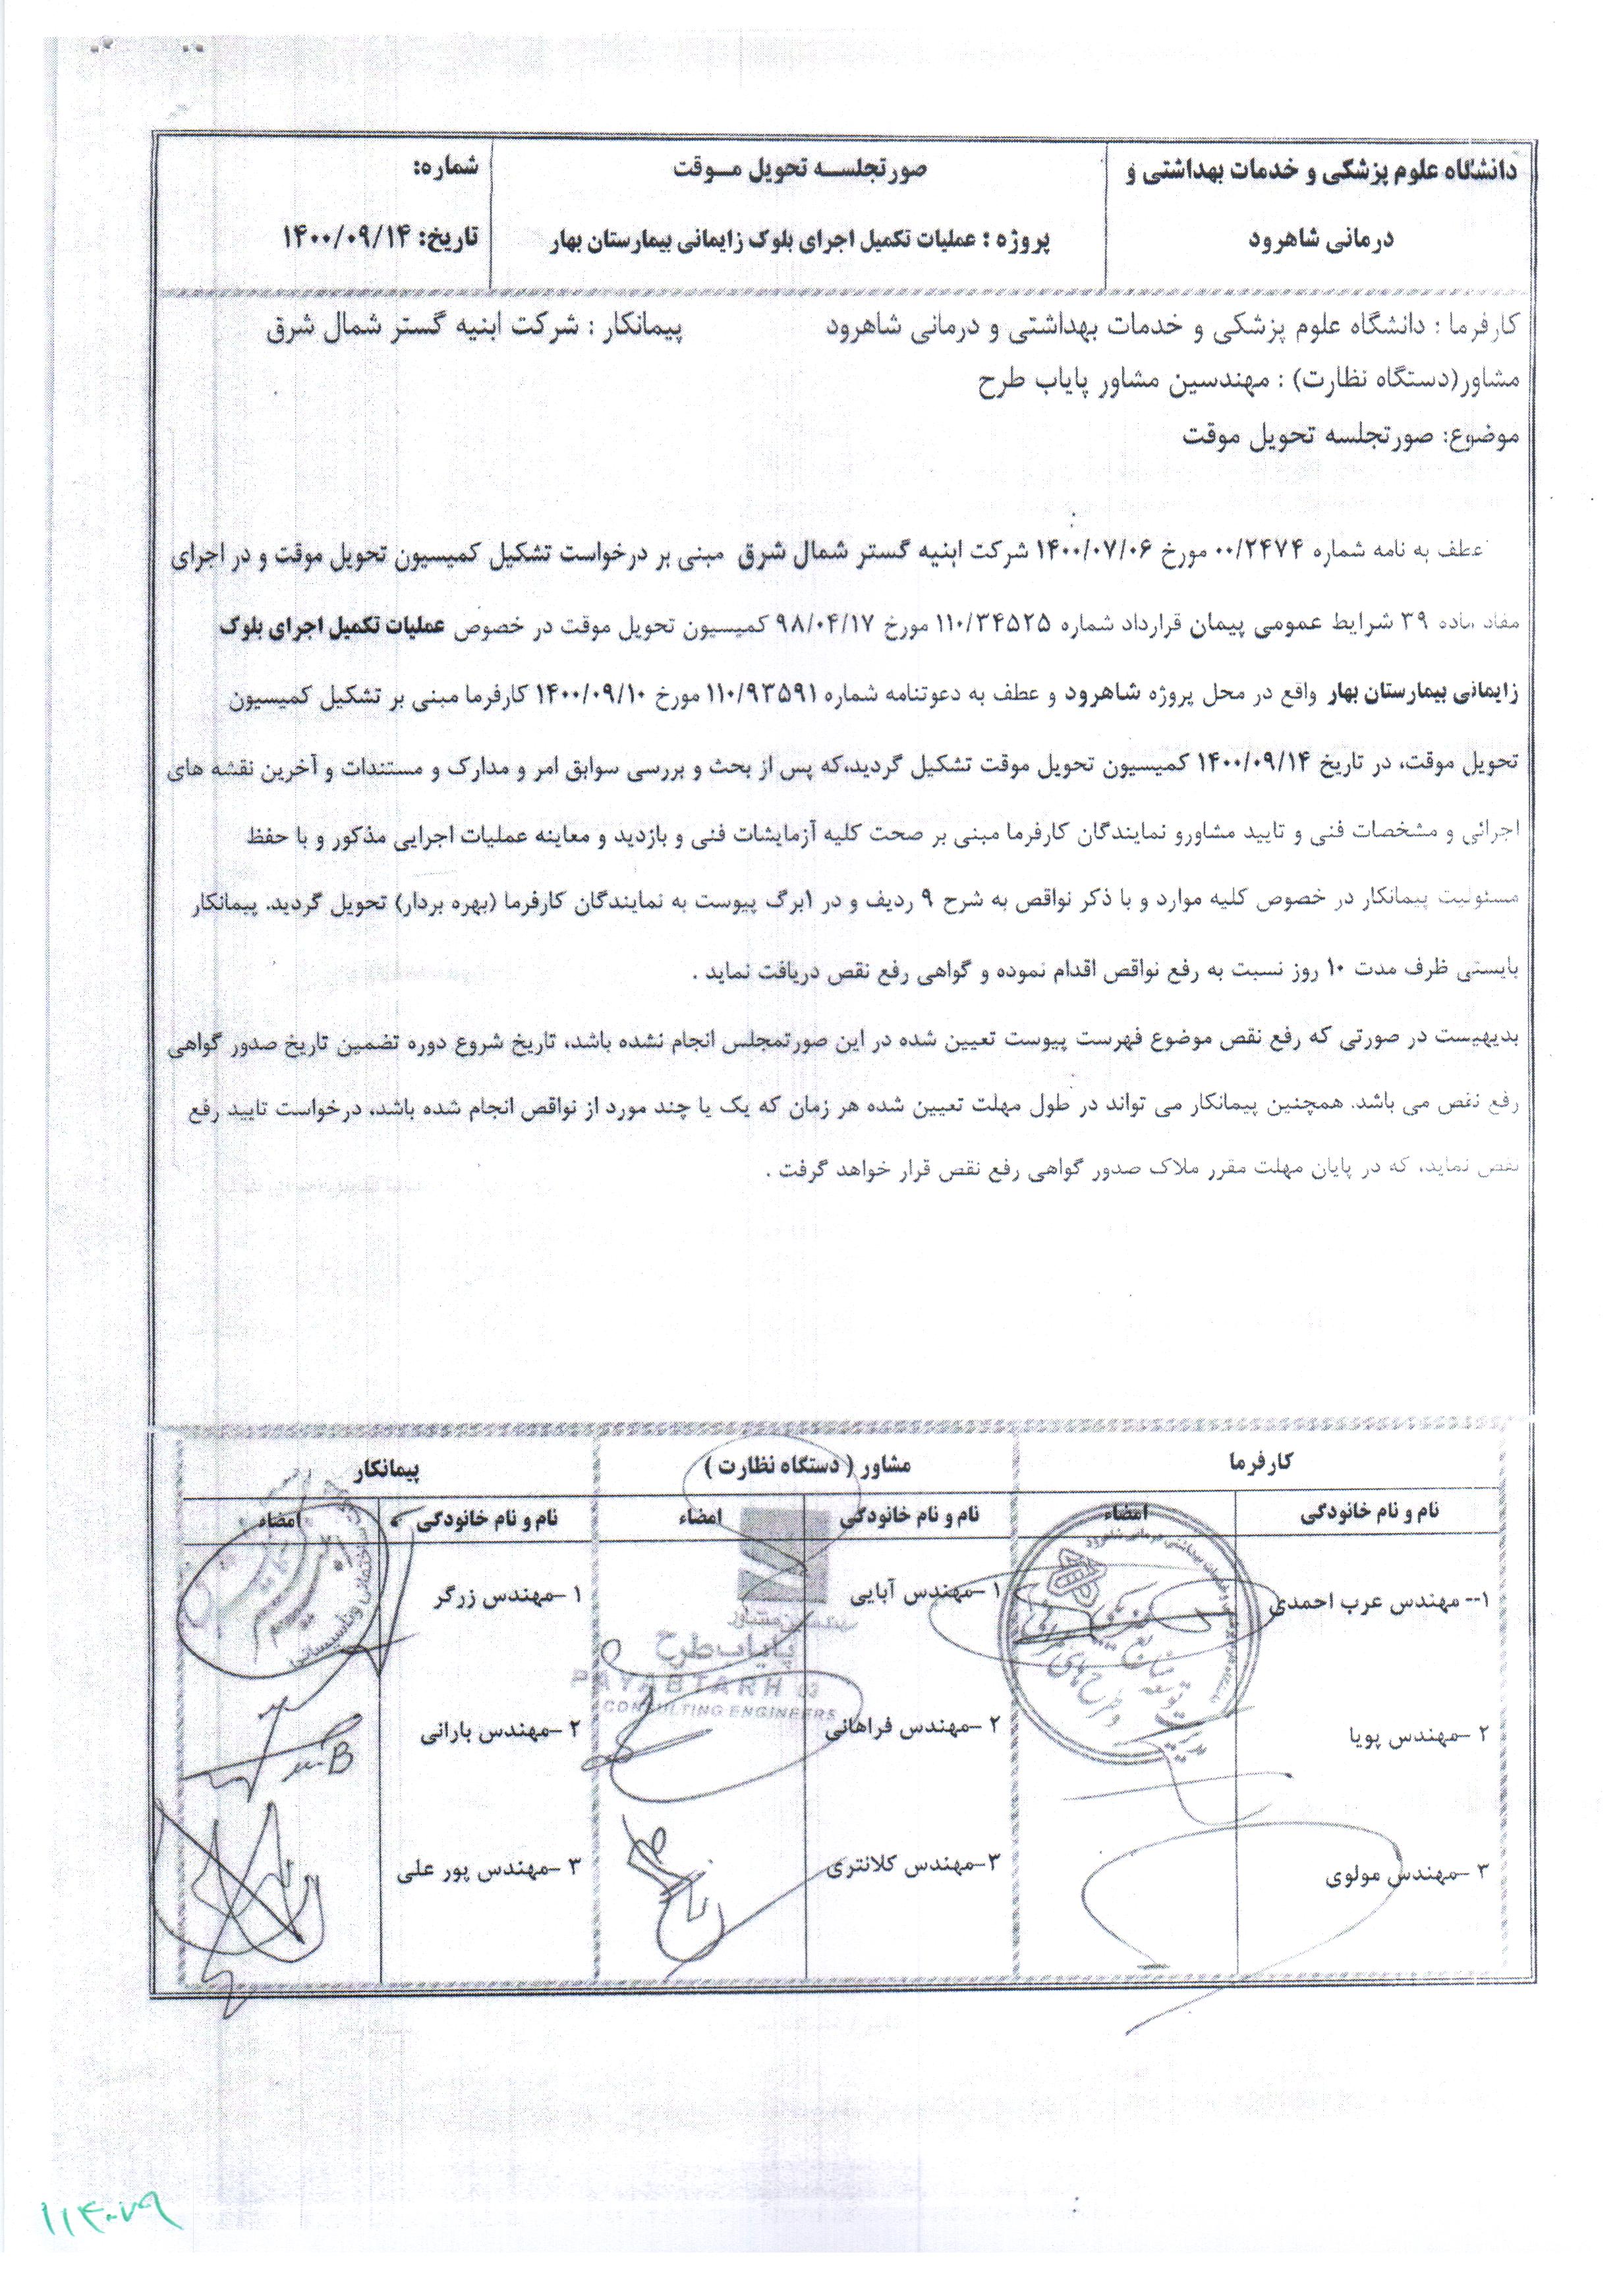 دانشگاه علوم پزشکی و خدمات بهداشتی و
درمانی شاهرود
صورتجلســه تحویل مــوقت
پروژه : عملیات تکمیل اجرای بلوک زایمانی بیمارستان بهار
شماره:
تاریخ: ۱۴۰۰/۰۹/۱۴
کارفرما : دانشگاه علوم پزشکی و خدمات بهداشتی و درمانی شاهرود پیمانکار : شرکت ابنیه گستر شمال شرق
مشاور(دستگاه نظارت) : مهندسین مشاور پایاب طرح
موضوع: صورتجلسه تحویل موقت
عطف به نامه شماره ۰۰/۲۴۷۴ مورخ ۱۴۰۰/۰۷/۰۶ شرکت ابنیه گستر شمال شرق مبنی بر درخواست تشکیل کمیسیون تحویل موقت و در اجرای
مفاد ماده ۳۹ شرایط عمومی پیمان قرارداد شماره ۱۱۰/۳۴۵۲۵ مورخ ۹۸/۰۴/۱۷ کمیسیون تحویل موقت در خصوص عملیات تکمیل اجرای بلوک
زایمانی بیمارستان بهار واقع در محل پروژه شاهرود و عطف به دعوتنامه شماره ۱۱۰/۹۳۵۹۱ مورخ ۱۴۰۰/۰۹/۱۰ کارفرما مبنی بر تشکیل کمیسیون
تحویل موقت، در تاریخ ۱۴۰۰/۰۹/۱۴ کمیسیون تحویل موقت تشکیل گردید،که پس از بحث و بررسی سوابق امر و مدارک و مستندات و آخرین نقشه های
اجرائی و مشخصات فنی و تایید مشاورو نمایندگان کارفرما مبنی بر صحت کلیه آزمایشات فنی و بازدید و معاینه عملیات اجرایی مذکور و با حفظ
مسئولیت پیمانکار در خصوص کلیه موارد و با ذکر نواقص به شرح ۹ ردیف و در ۱برگ پیوست به نمایندگان کارفرما (بهره بردار) تحویل گردید. پیمانکار
بایستی ظرف مدت ۱۰ روز نسبت به رفع نواقص اقدام نموده و گواهی رفع نقص دریافت نماید .
بدیهیست در صورتی که رفع نقص موضوع فهرست پیوست تعیین شده در این صورتمجلس انجام نشده باشد، تاریخ شروع دوره تضمین تاریخ صدور گواهی
رفع نقص می باشد. همچنین پیمانکار می تواند در طول مهلت تعیین شده هر زمان که یک یا چند مورد از نواقص انجام شده باشد، درخواست تایید رفع
نقص نماید، که در پایان مهلت مقرر ملاک صدور گواهی رفع نقص قرار خواهد گرفت .
کارفرما مشاور ( دستگاه نظارت ) پیمانکار
نام و نام خانودگی امضاء نام و نام خانودگی امضاء نام و نام خانودگی امضاء
۱-- مهندس عرب احمدی ۱ –مهندس آبایی ۱ –مهندس زرگر
پایاب طرح
PAYAB TARH
CONSULTING ENGINEERS
۲ –مهندس پویا ۲ –مهندس فراهانی ۲ –مهندس بارانی
۳ –مهندس مولوی ۳–مهندس کلانتری ۳ –مهندس پور علی